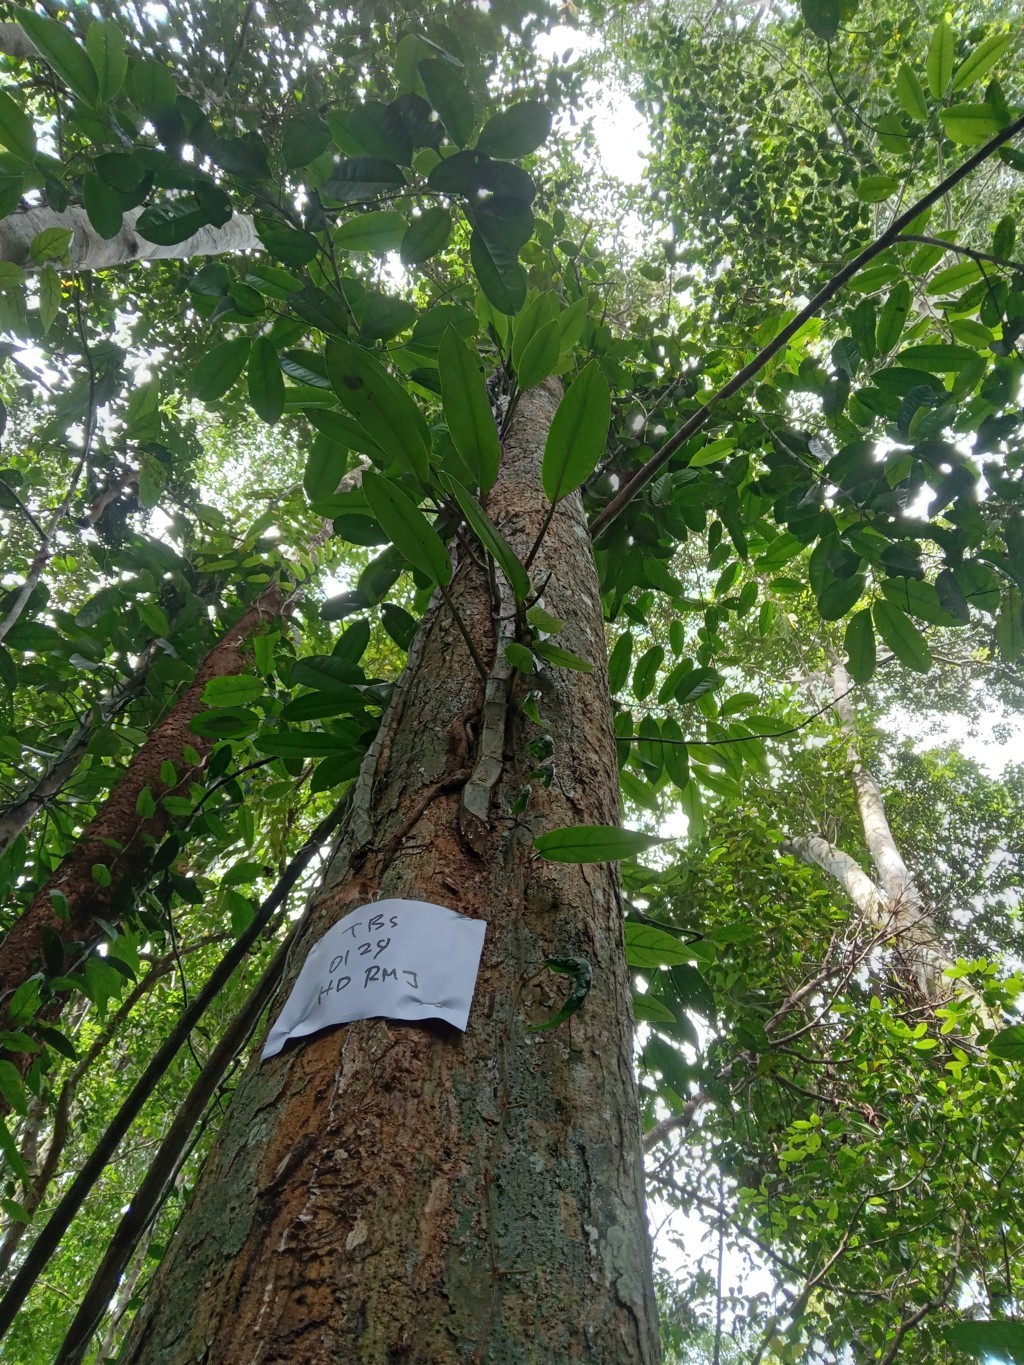 TBS
0129
HD RMJ